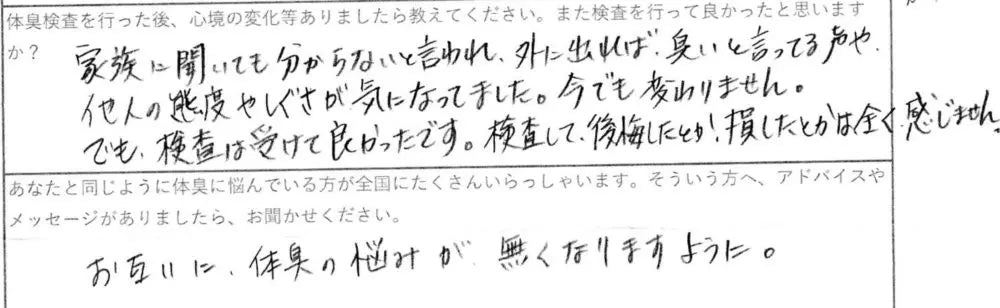 体臭検査を行った後、心境の変化等ありましたら教えてください。また検査を行って良かったと思います
か？
家族に聞いても分からないと言われ、外に出れば、臭いと言ってる声や、
他人の態度やしぐさが気になってました。今でも変わりません。
でも、検査は受けて良かったです。検査して、後悔したとか、損したとかは全く感じません。
あなたと同じように体臭に悩んでいる方が全国にたくさんいらっしゃいます。そういう方へ、アドバイスや
メッセージがありましたら、お聞かせください。
お互いに、体臭の悩みが、無くなりますように。